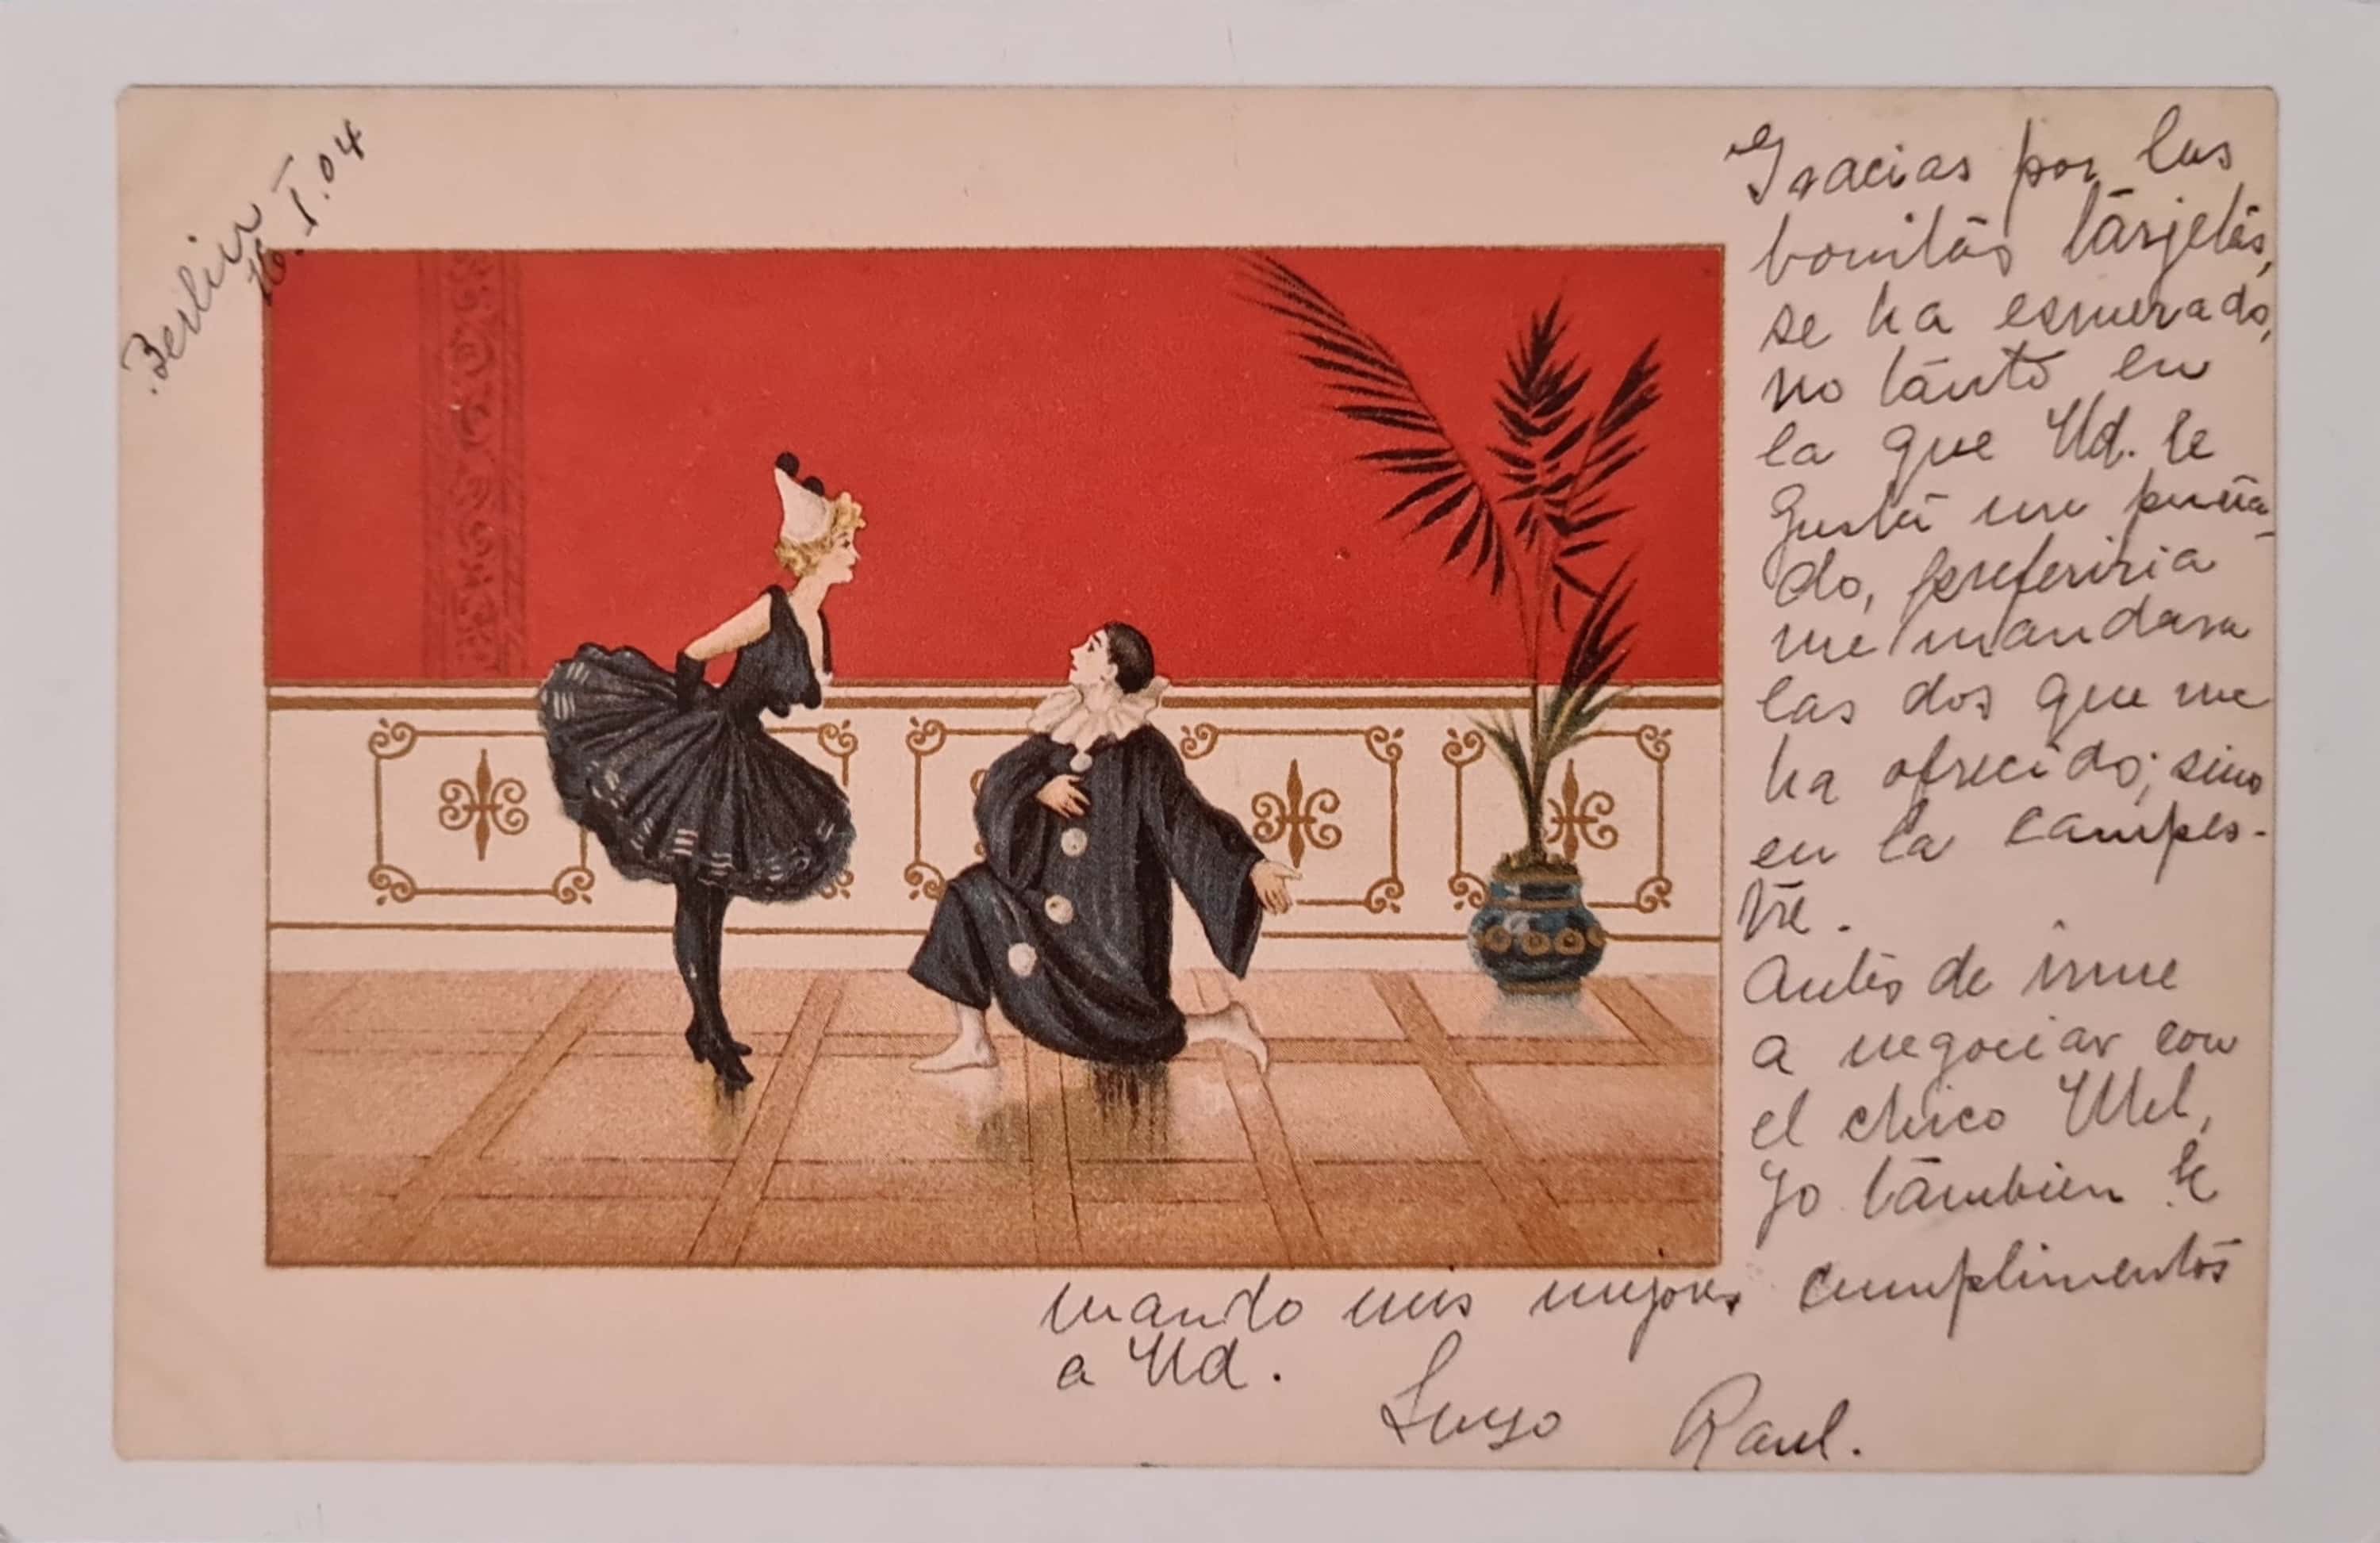 Berlin
16.I.04
Gracias por las
bonitas tarjetas,
se ha esmerado,
no tanto en
la que Ud. le
gusta un puña-
do, preferiria
me mandara
las dos que me
ha ofrecido; sino
en la campes-
tre.
Antes de irme
a negociar con
el chico
Yo tambien le
mando mis mejores cumplimentos
a Ud.
Suyo Raul.